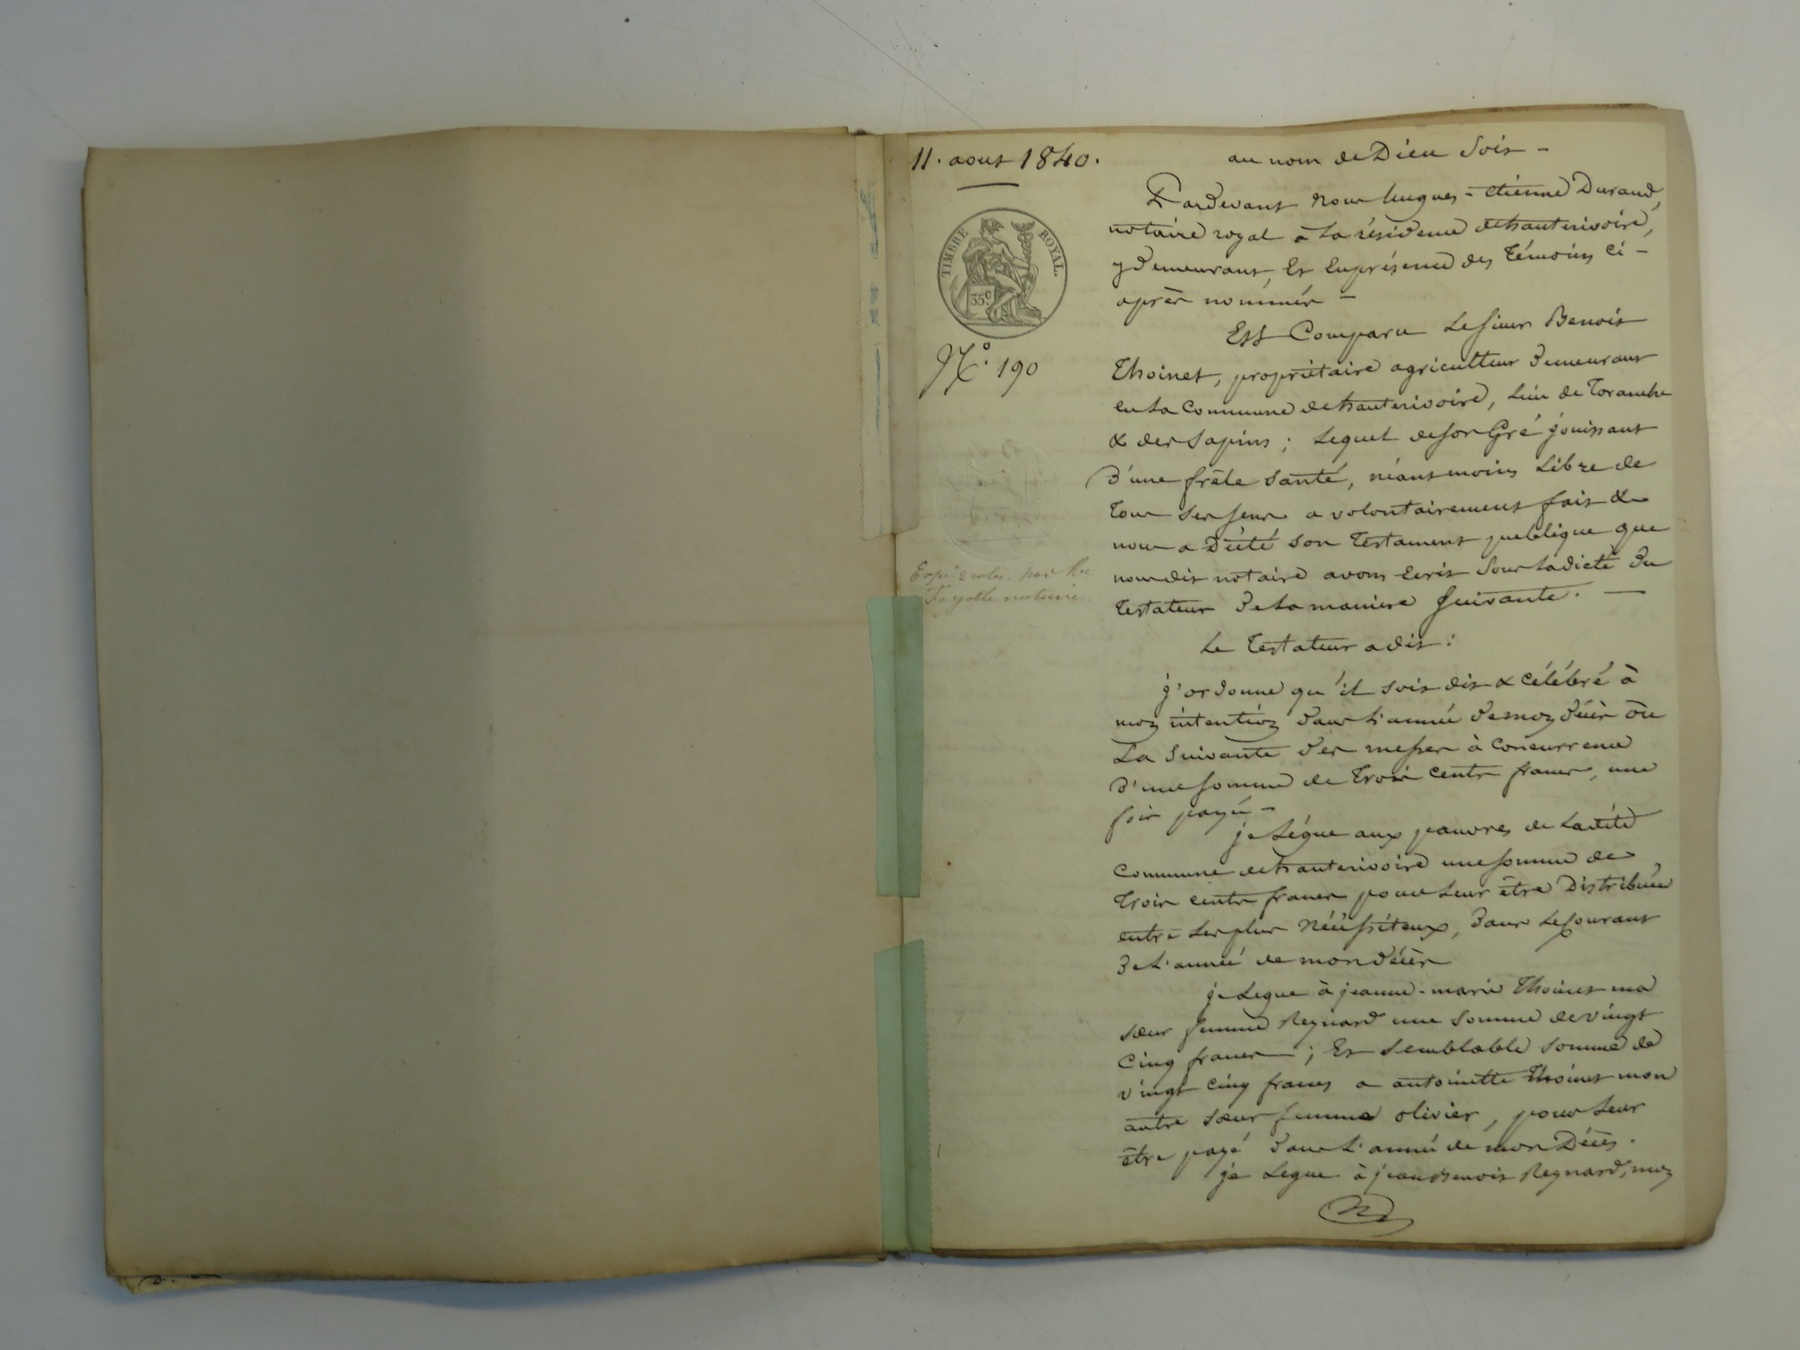 11. aout 1840.
TIMBRE ROYAL.
35c.
N.° 190
Expé
notaire
au nom de Dieu soit -
Pardevant nous hugues - étienne Durand,
notaire royal à la résidence d'hauterivoire,
y demeurant, Et En présence des témoins ci -
après nommés -
Est Comparu Le sieur Benoit
Thoinet, propriétaire agriculteur demeurant
en la Commune d'hauterivoire, Lieu de Toranche
& des sapins ; Lequel de son Gré jouissant
d'une frêle santé, néantmoins Libre de
tous ses sens a volontairement fait &
nous a Dicté son testament publique que
nous dit notaire avons Ecrit sous la dicté du
testateur de la maniere suivante. —
Le testateur a dit :
j'ordonne qu'il soit dit & célébré à
mon intention dans l'année de mon décès ou
La suivante des messes à concurrence
d'une somme de trois cents francs, une
fois payé -
je Légue aux pauvres de Ladite
Commune d'hauterivoire une somme de
trois cents francs pour Leur être Distribuée
entre Les plus Nécéssiteux, dans Le courant
de L'année de mon décès
je Legue à jeanne - marie Thoinet ma
sœur femme Reynard une somme de vingt
cinq francs — ; Et semblable somme de
vingt cinq francs a antoinette Thoinet mon
autre sœur femme olivier, pour Leur
être payé dans L'année de mon Décès.
je Legue à jean Benoit Reynard, mon